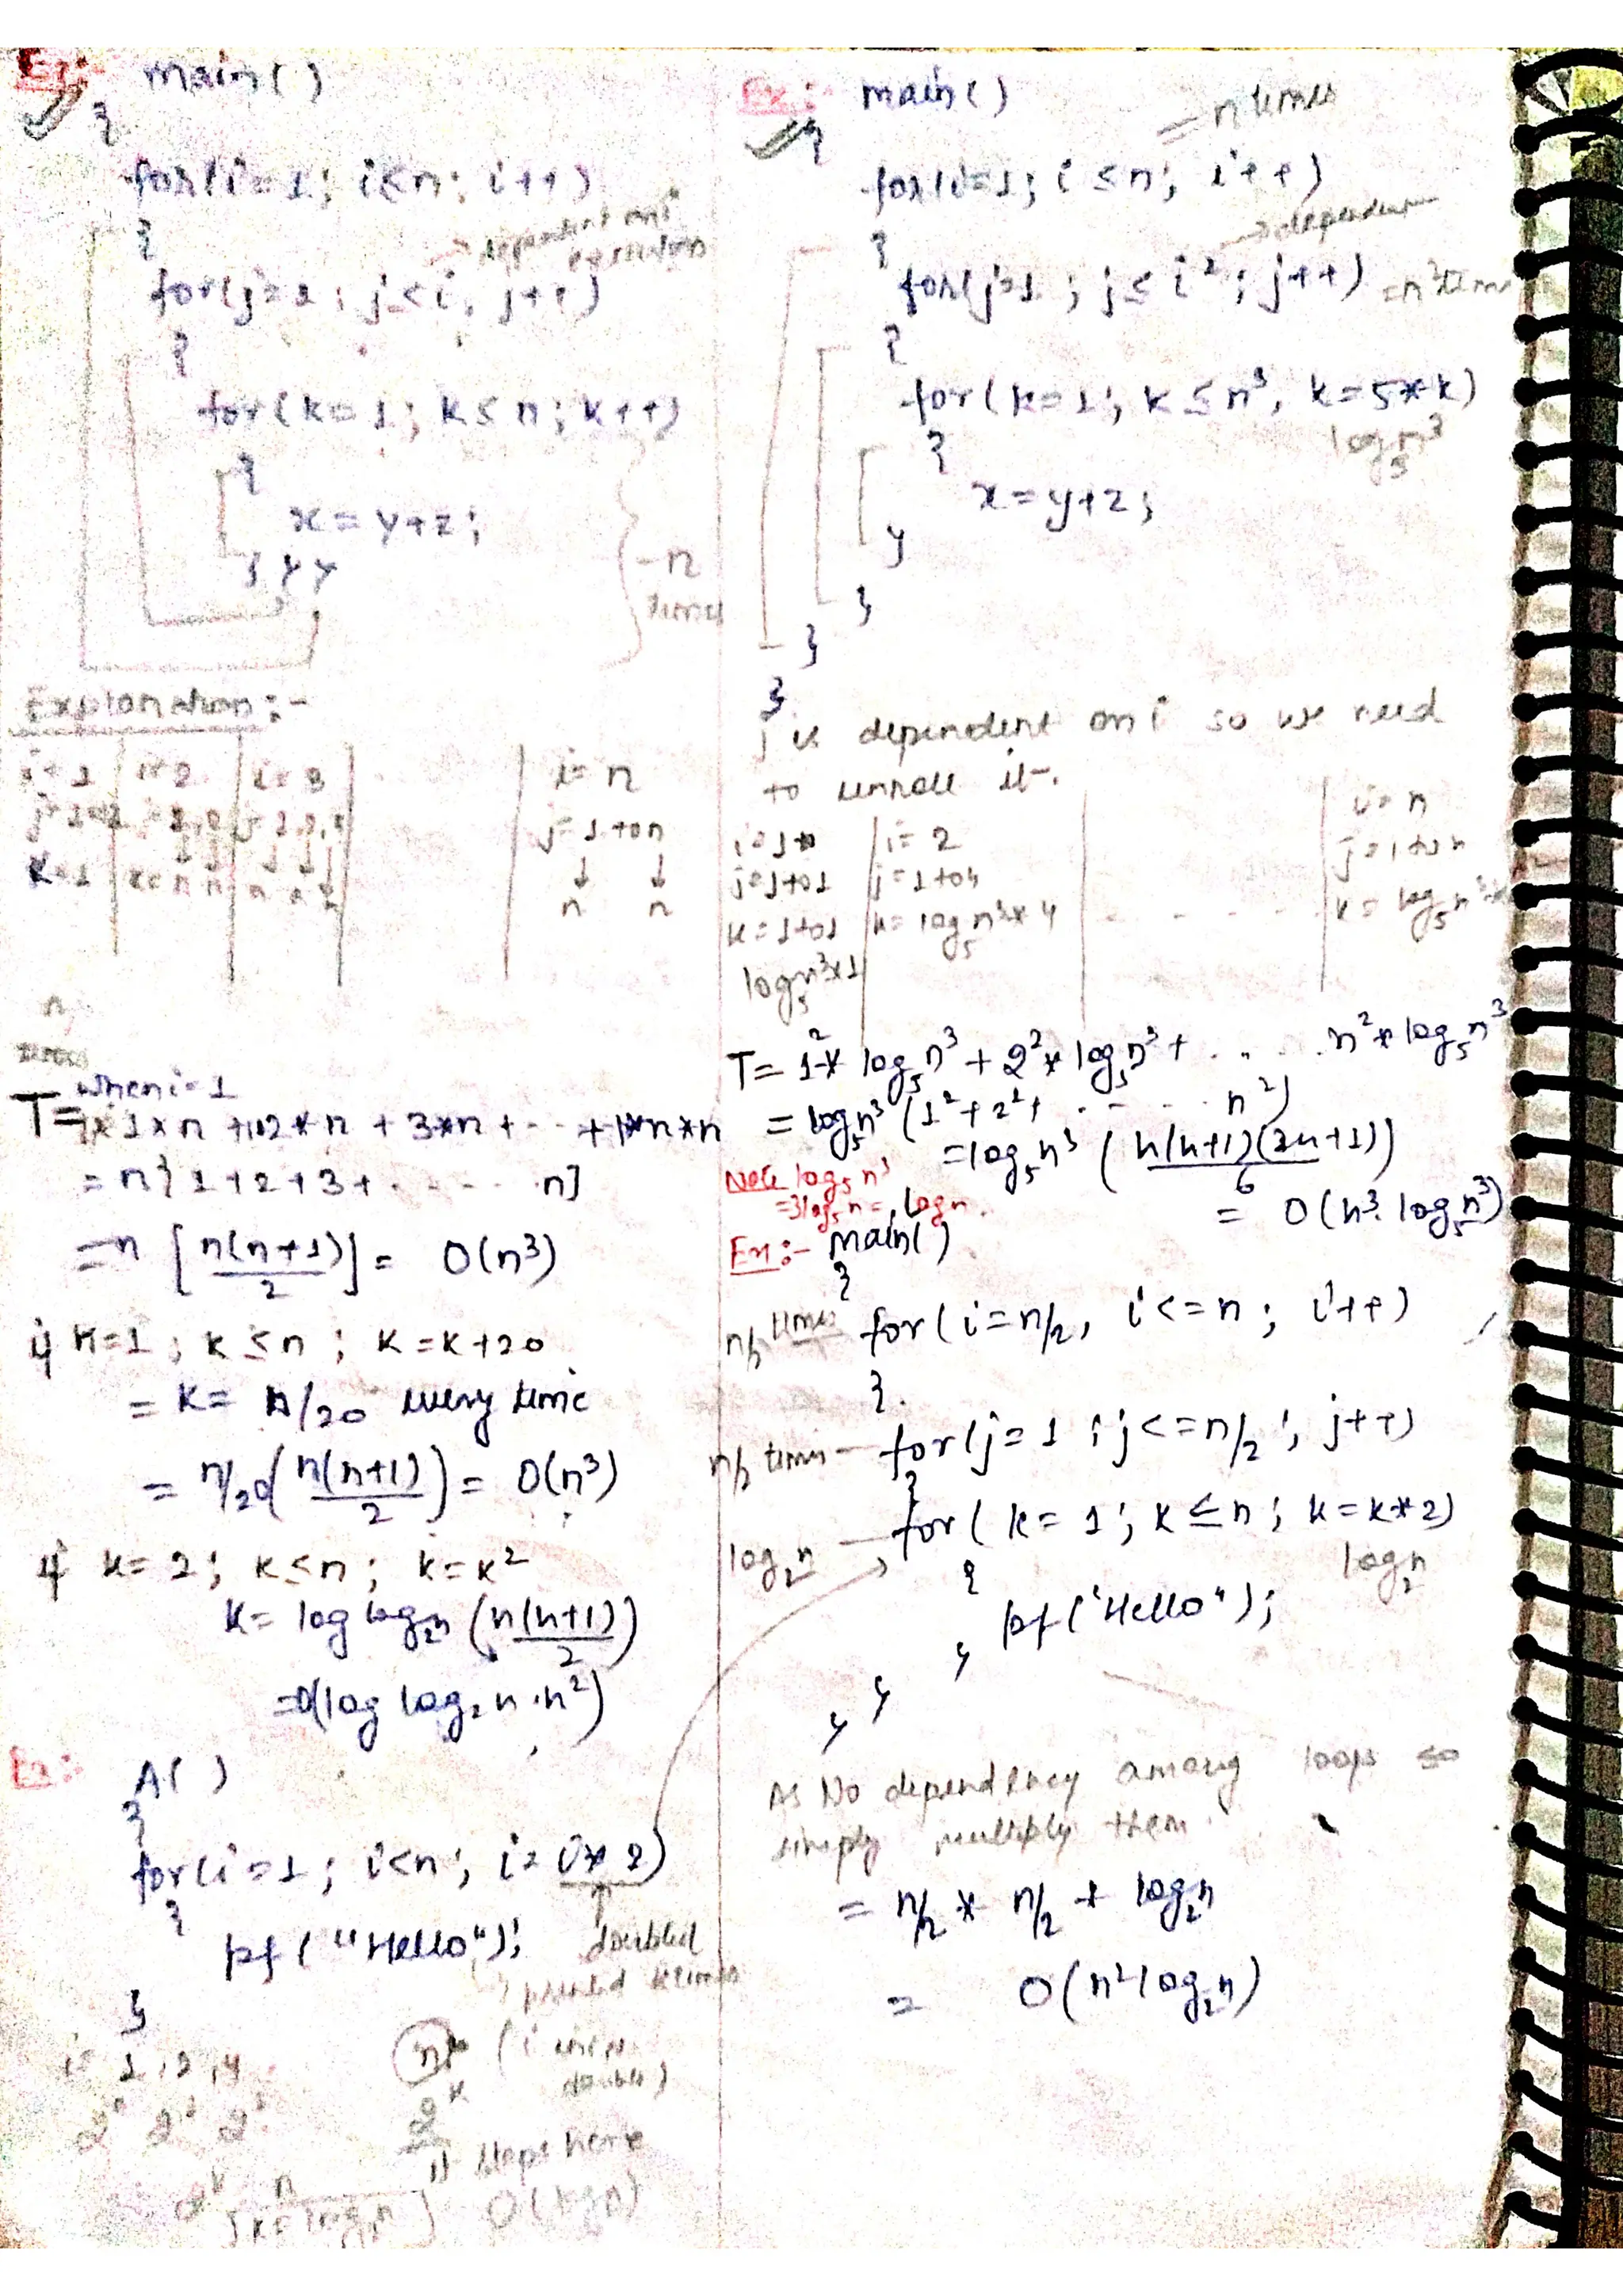 Ex:- main()
{
for(i=1; i≤n; i++)
{
→ dependent on i
for(j=1; j≤i; j++)
{
for(k=1; k≤n; k++)
{
x=y+z;
} } }
-n
times
Explanation:-
i=1 | i=2 | i=3 | i=n
j=1 to n
↓ ↓
n n
n
times
when i=1
T= 1*n + 2*n + 3*n + ... + n*n
= n[1+2+3+ . . . . n]
= n [n(n+1)/2] = O(n³)
if k=1; k≤n; k=k+20
= k= n/20 every time
= n/20(n(n+1)/2) = O(n³)
if k=2; k≤n; k=k²
k= log log₂n (n(n+1)/2)
=O(log log₂ n . n²)
Ex:- A( )
{
for(i=1; i<n; i=i*2)
{
↑
doubled
pf("Hello");
printed k times
}
i= 1, 2, 4
2⁰ 2¹ 2²
2ᵏ
stops here
2ᵏ n
[k=log₂n] O(log n)
Ex:- main()
= n times
{
for(i=1; i≤n; i++)
→ dependent
{
for(j=1; j≤i²; j++) =n² times
{
for(k=1; k≤n³, k=5*k)
log₅n³
{
x=y+z;
}
}
}
}
j is dependent on i so we need
to unroll it-.
i=1 | i=2 | i=n
j=1 to 1 | j=1 to 4
k=1 to 1 | k= log₅n³*4 . . . . k= log₅n³
log₅n³*1
T= 1²* log₅n³ + 2²* log₅n³ + . . . . n²* log₅n³
= log₅n³ (1²+2²+ . . . . n²)
=log₅n³ (n(n+1)(2n+1)/6)
Note log₅n³
=3log₅n = log n.
= O(n³. log₅n³)
Ex:- main()
{
n/2 times for(i=n/2, i<=n; i++)
{.
n/2 times — for(j=1; j<=n/2; j++)
{
log₂n — for(k=1; k≤n; k=k*2)
{
log₂n
pf('Hello");
}
}
}
As No dependency among loops so
simply multiply them
= n/2 * n/2 * log₂n
= O(n²log₂n)